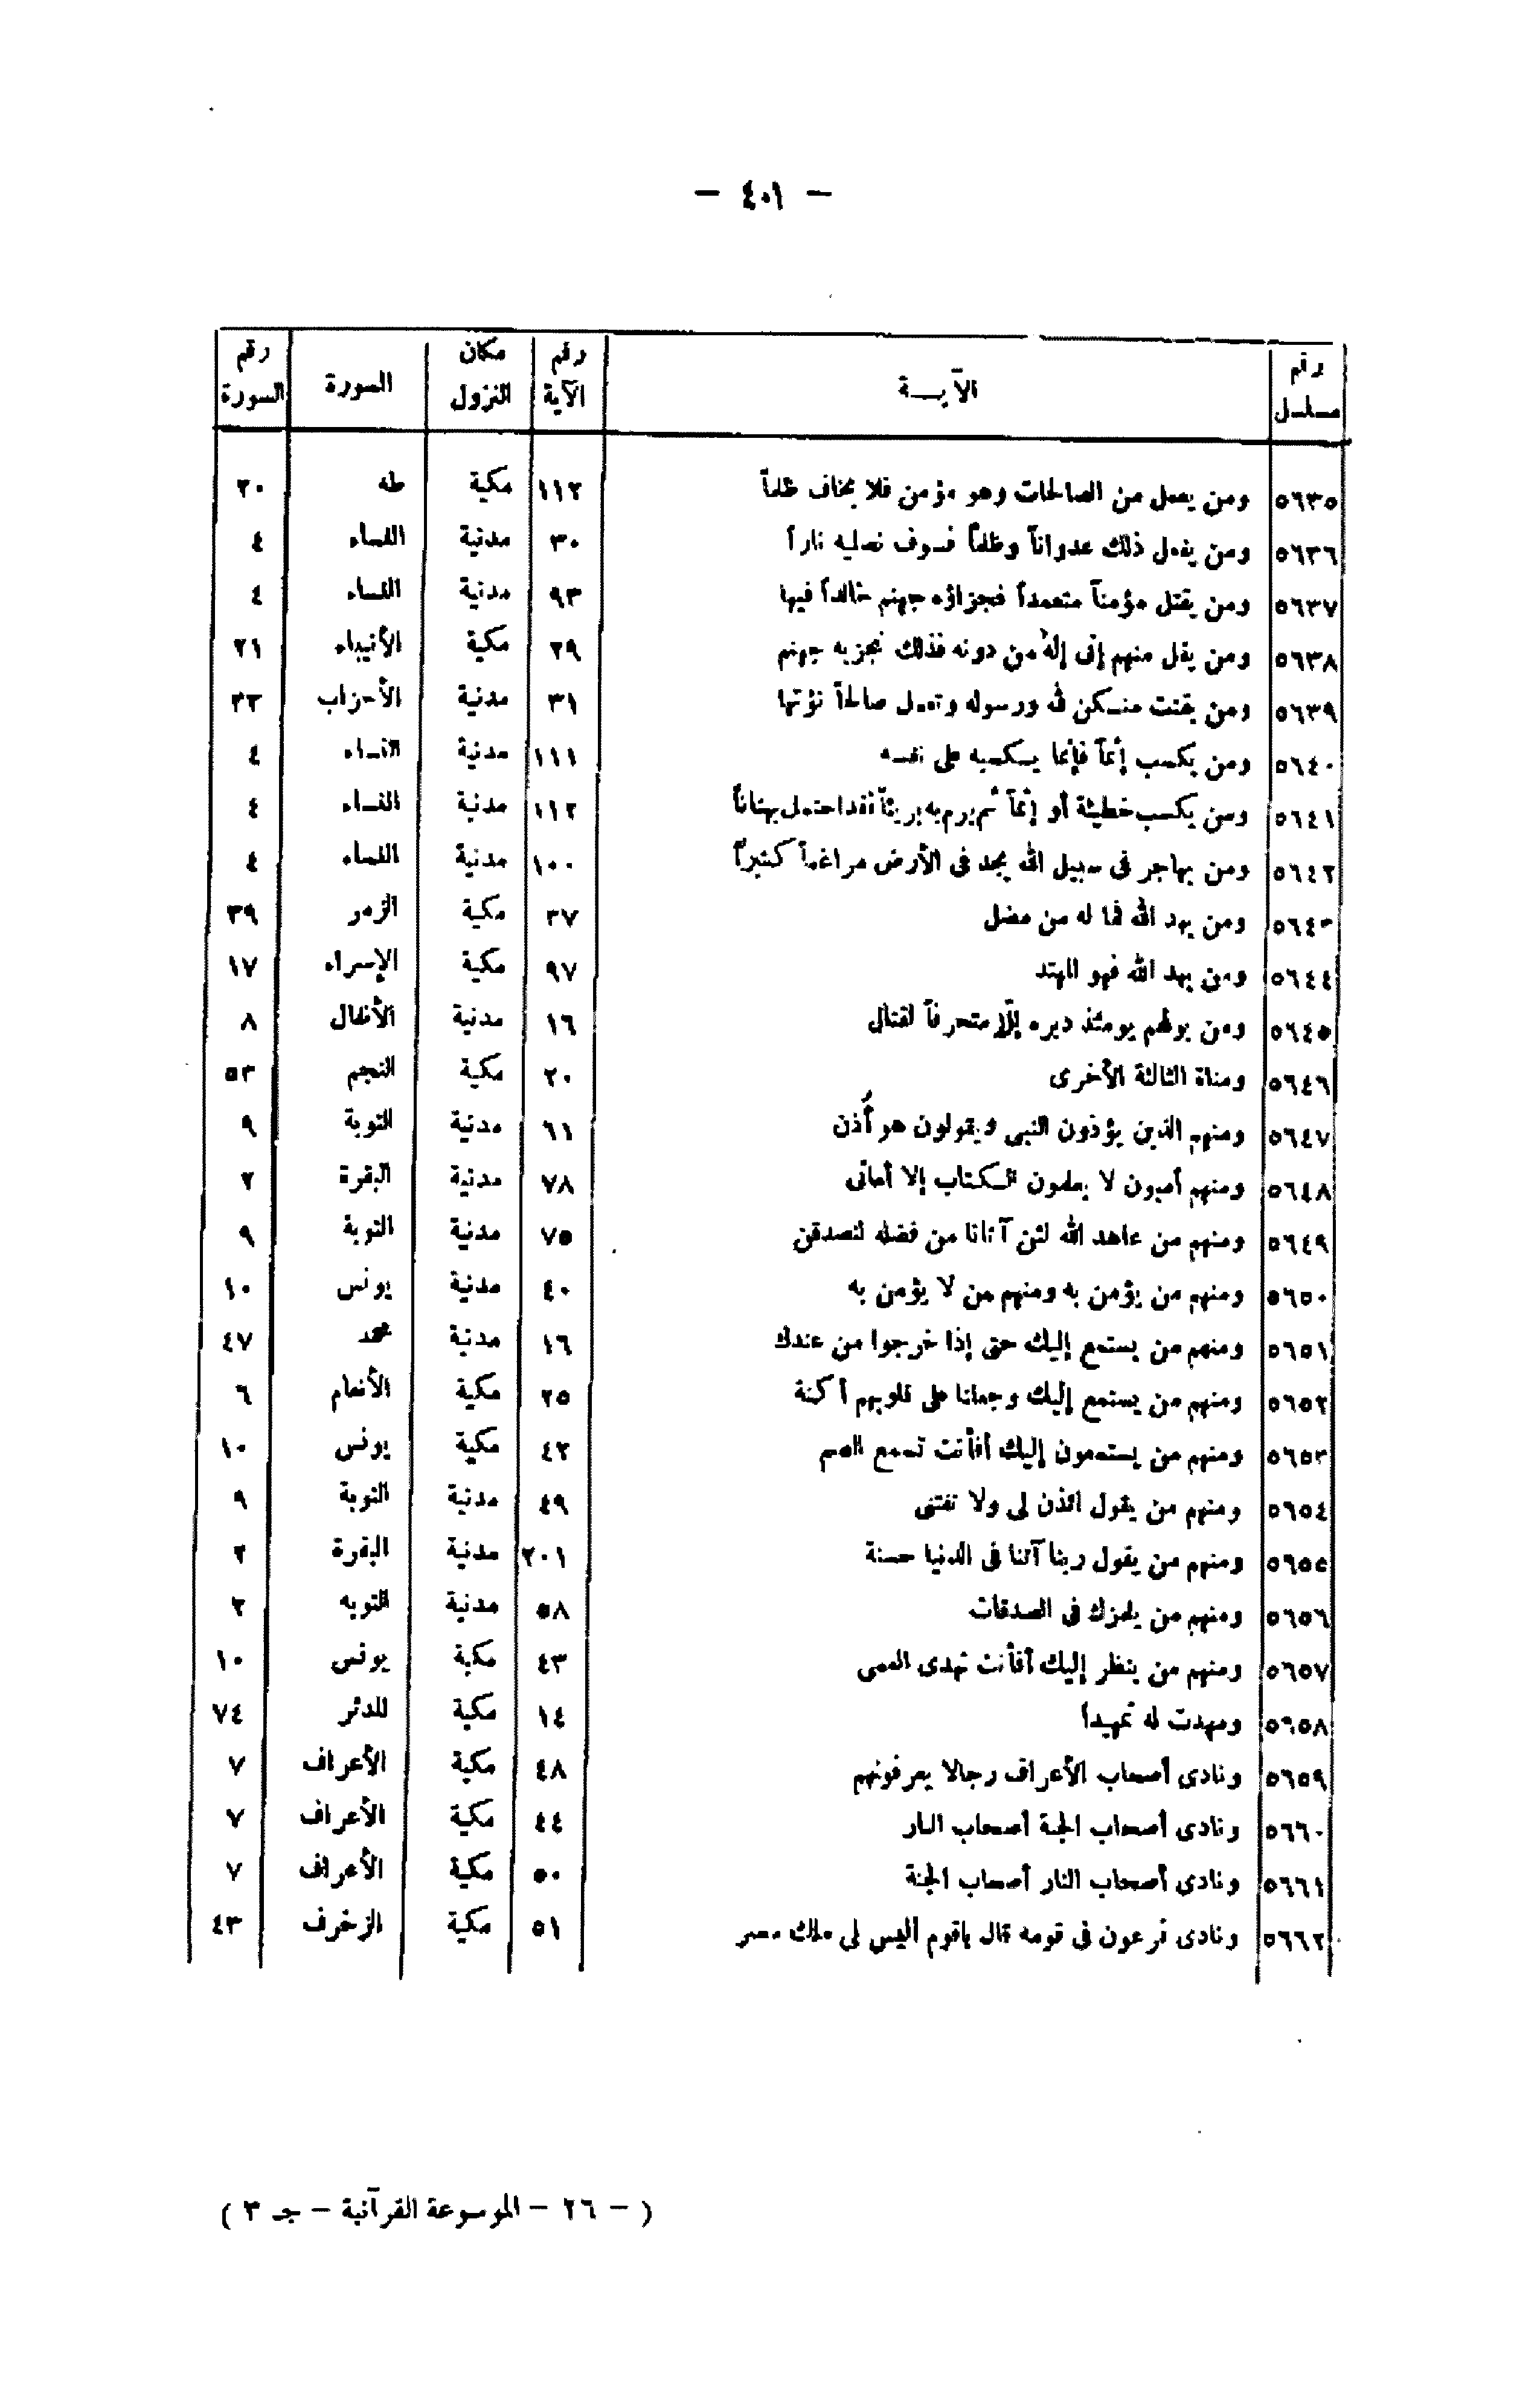 — ٤٠١ —
رقم مسلسل | الآيــة | رقم الآية | مكان النزول | السورة | رقم السورة
٥٦٣٥ | ومن يعمل من الصالحات وهو مؤمن فلا يخاف ظلماً | ١١٢ | مكية | طه | ٢٠
٥٦٣٦ | ومن يفعل ذلك عدواناً وظلماً فسوف نصليه ناراً | ٣٠ | مدنية | النساء | ٤
٥٦٣٧ | ومن يقتل مؤمناً متعمداً فجزاؤه جهنم خالداً فيها | ٩٣ | مدنية | النساء | ٤
٥٦٣٨ | ومن يقل منهم إنى إلهٌ من دونه فذلك نجزيه جهنم | ٢٩ | مكية | الأنبياء | ٢١
٥٦٣٩ | ومن يقنت منكن لله ورسوله وتعمل صالحاً نؤتها | ٣١ | مدنية | الأحزاب | ٣٣
٥٦٤٠ | ومن يكسب إثماً فإنما يكسبه على نفسه | ١١١ | مدنية | النساء | ٤
٥٦٤١ | ومن يكسب خطيئة أو إثماً ثم يرم به بريئاً فقد احتمل بهتاناً | ١١٢ | مدنية | النساء | ٤
٥٦٤٢ | ومن يهاجر فى سبيل الله يجد فى الأرض مراغماً كثيراً | ١٠٠ | مدنية | النساء | ٤
٥٦٤٣ | ومن يهد الله فما له من مضل | ٣٧ | مكية | الزمر | ٣٩
٥٦٤٤ | ومن يهد الله فهو المهتد | ٩٧ | مكية | الإسراء | ١٧
٥٦٤٥ | ومن يولهم يومئذ دبره إلّا متحرفاً لقتال | ١٦ | مدنية | الأنفال | ٨
٥٦٤٦ | ومناة الثالثة الأخرى | ٢٠ | مكية | النجم | ٥٣
٥٦٤٧ | ومنهم الذين يؤذون النبى ويقولون هو أُذن | ٦١ | مدنية | التوبة | ٩
٥٦٤٨ | ومنهم أميون لا يعلمون الكتاب إلا أمانى | ٧٨ | مدنية | البقرة | ٢
٥٦٤٩ | ومنهم من عاهد الله لئن آتانا من فضله لنصدقن | ٧٥ | مدنية | التوبة | ٩
٥٦٥٠ | ومنهم من يؤمن به ومنهم من لا يؤمن به | ٤٠ | مدنية | يونس | ١٠
٥٦٥١ | ومنهم من يستمع إليك حتى إذا خرجوا من عندك | ١٦ | مدنية | محمد | ٤٧
٥٦٥٢ | ومنهم من يستمع إليك وجعلنا على قلوبهم أكنة | ٢٥ | مكية | الأنعام | ٦
٥٦٥٣ | ومنهم من يستمعون إليك أفأنت تسمع الصم | ٤٢ | مكية | يونس | ١٠
٥٦٥٤ | ومنهم من يقول ائذن لى ولا تفتنى | ٤٩ | مدنية | التوبة | ٩
٥٦٥٥ | ومنهم من يقول ربنا آتنا فى الدنيا حسنة | ٢٠١ | مدنية | البقرة | ٢
٥٦٥٦ | ومنهم من يلمزك فى الصدقات | ٥٨ | مدنية | التوبه | ٢
٥٦٥٧ | ومنهم من ينظر إليك أفأنت تهدى العمى | ٤٣ | مكية | يونس | ١٠
٥٦٥٨ | ومهدت له تمهيداً | ١٤ | مكية | المدثر | ٧٤
٥٦٥٩ | ونادى أصحاب الأعراف رجالا يعرفونهم | ٤٨ | مكية | الأعراف | ٧
٥٦٦٠ | ونادى أصحاب الجنة أصحاب النار | ٤٤ | مكية | الأعراف | ٧
٥٦٦١ | ونادى أصحاب النار أصحاب الجنة | ٥٠ | مكية | الأعراف | ٧
٥٦٦٢ | ونادى فرعون فى قومه قال ياقوم أليس لى ملك مصر | ٥١ | مكية | الزخرف | ٤٣
( — ٢٦ — الموسوعة القرآنية — جـ ٣ )